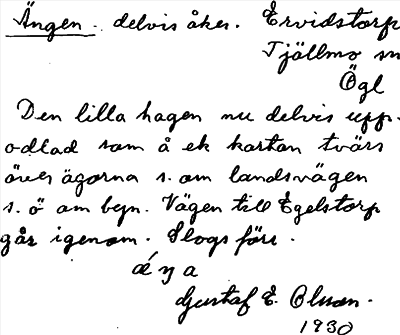 Ängen. delvis åker. Ervidstorp
Tjällmo sn
Ögl
Den lilla hagen nu delvis upp-
odlad som å ek kartan tvärs
över ägorna s. om landsvägen
s. ö om byn. Vägen till Egelstorp
går igenom. Slogs förr.
Gustaf E. Olson.
1930